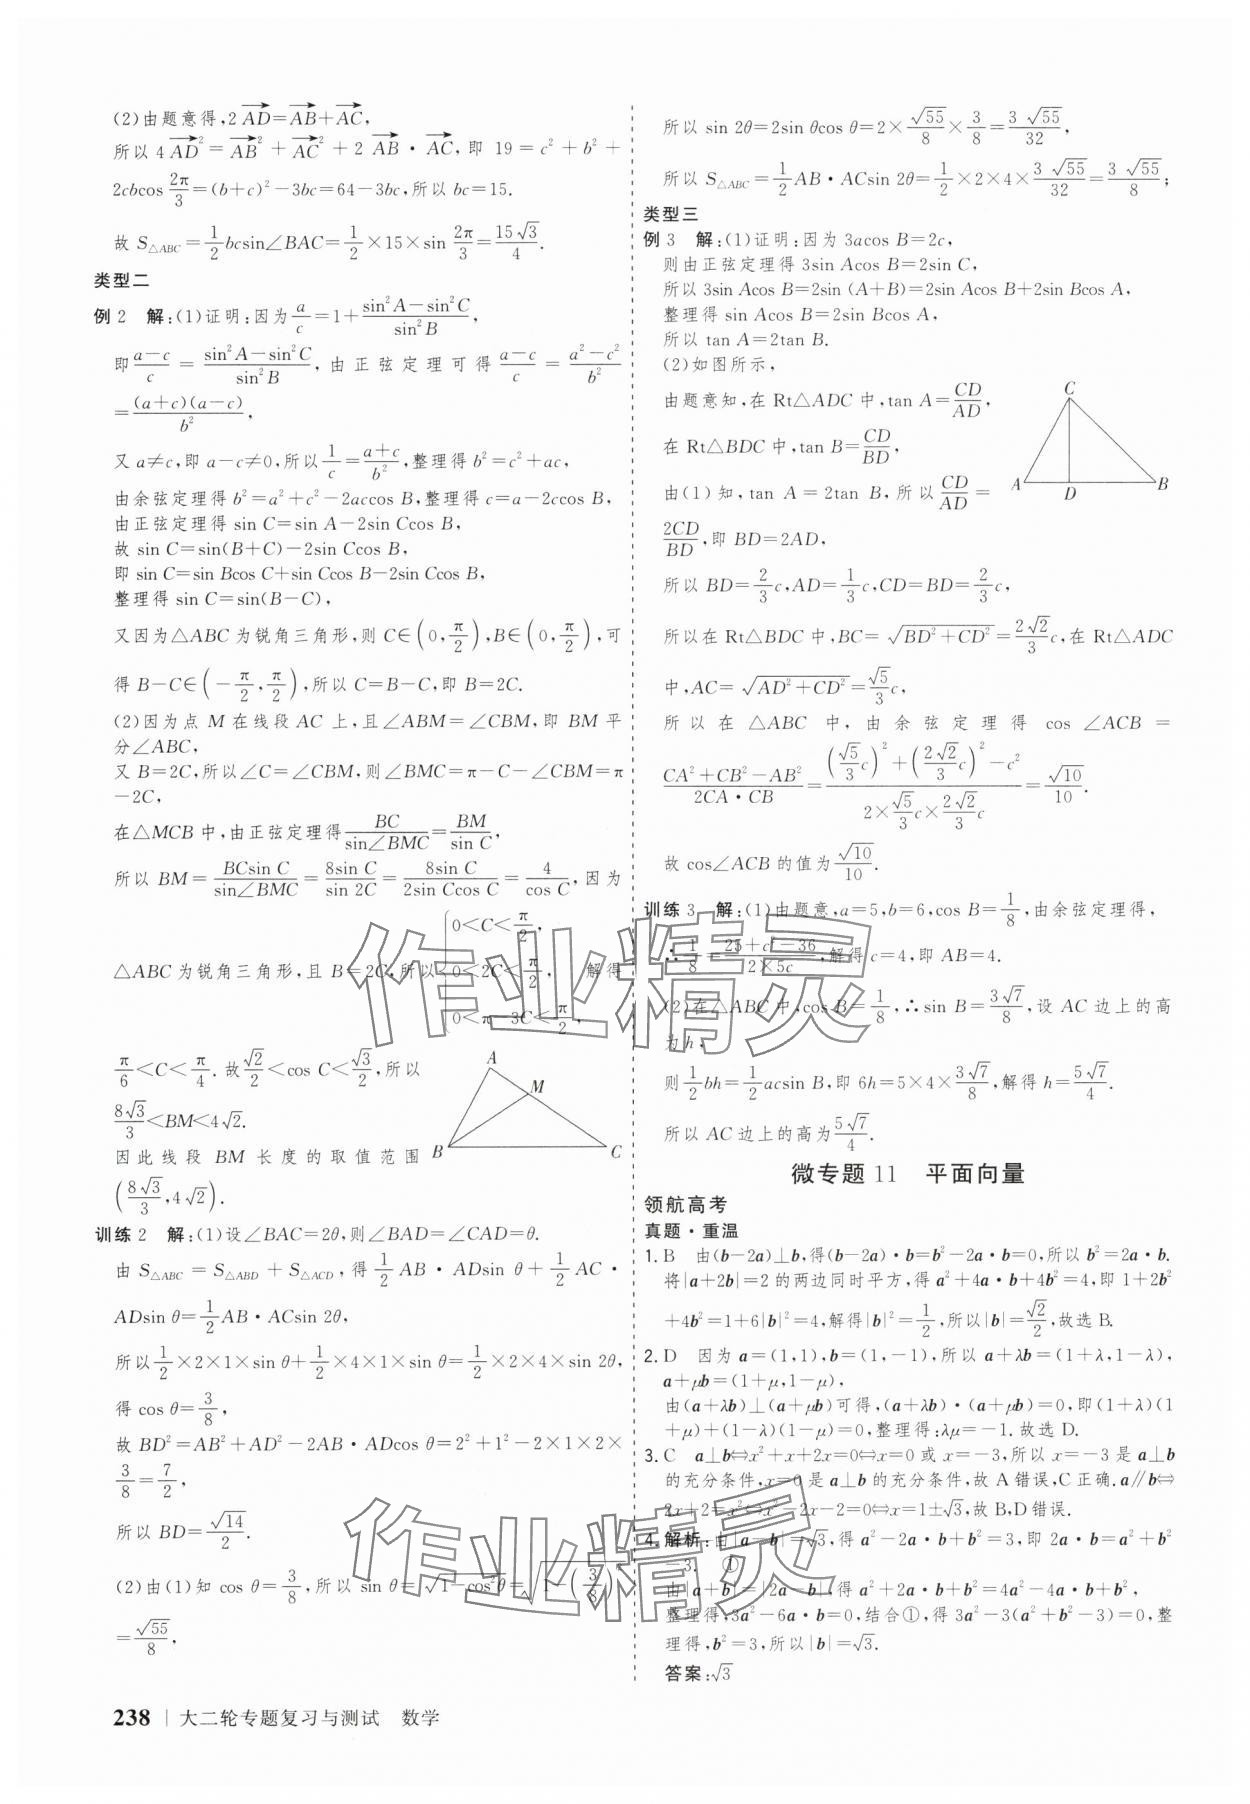 (2)由题意得,2AD=AB+AC,
所以 4AD²=AB²+AC²+2AB·AC,即 19=c²+b²+
2cbcos 2π/3=(b+c)²-3bc=64-3bc,所以 bc=15.
故 S△ABC=1/2 bcsin∠BAC=1/2×15×sin 2π/3=15√3/4.
类型二
例 2 解:(1)证明:因为 a/c=1+(sin²A-sin²C)/sin²B,
即 (a-c)/c=(sin²A-sin²C)/sin²B,由正弦定理可得 (a-c)/c=(a²-c²)/b²
=(a+c)(a-c)/b²,
又 a≠c,即 a-c≠0,所以 1/c=(a+c)/b²,整理得 b²=c²+ac,
由余弦定理得 b²=a²+c²-2accos B,整理得 c=a-2ccos B,
由正弦定理得 sin C=sin A-2sin Ccos B,
故 sin C=sin(B+C)-2sin Ccos B,
即 sin C=sin Bcos C+sin Ccos B-2sin Ccos B,
整理得 sin C=sin(B-C),
又因为△ABC 为锐角三角形,则 C∈(0,π/2),B∈(0,π/2),可
得 B-C∈(-π/2,π/2),所以 C=B-C,即 B=2C.
(2)因为点 M 在线段 AC 上,且∠ABM=∠CBM,即 BM 平
分∠ABC,
又 B=2C,所以∠C=∠CBM,则∠BMC=π-C-∠CBM=π
-2C,
在△MCB 中,由正弦定理得 BC/sin∠BMC=BM/sin C,
所以 BM=BCsin C/sin∠BMC=8sin C/sin 2C=8sin C/2sin Ccos C=4/cos C,因为
△ABC 为锐角三角形,且 B=2C,所以{0<C<π/2, 0<2C<π/2, 0<π-3C<π/2, 解得
π/6<C<π/4. 故 √2/2<cos C<√3/2,所以
8√3/3<BM<4√2.
因此线段 BM 长度的取值范围
(8√3/3,4√2).
A
M
B
C
训练 2 解:(1)设∠BAC=2θ,则∠BAD=∠CAD=θ.
由 S△ABC=S△ABD+S△ACD,得 1/2 AB·ADsin θ+1/2 AC·
ADsin θ=1/2 AB·ACsin 2θ,
所以 1/2×2×1×sin θ+1/2×4×1×sin θ=1/2×2×4×sin 2θ,
得 cos θ=3/8,
故 BD²=AB²+AD²-2AB·ADcos θ=2²+1²-2×1×2×
3/8=7/2,
所以 BD=√14/2.
(2)由(1)知 cos θ=3/8,所以 sin θ=√(1-cos²θ)=√(1-(3/8)²)
=√55/8,
所以 sin 2θ=2sin θcos θ=2×√55/8×3/8=3√55/32,
所以 S△ABC=1/2 AB·ACsin 2θ=1/2×2×4×3√55/32=3√55/8;
类型三
例 3 解:(1)证明:因为 3acos B=2c,
则由正弦定理得 3sin Acos B=2sin C,
所以 3sin Acos B=2sin (A+B)=2sin Acos B+2sin Bcos A,
整理得 sin Acos B=2sin Bcos A,
所以 tan A=2tan B.
(2)如图所示,
由题意知,在 Rt△ADC 中,tan A=CD/AD,
在 Rt△BDC 中,tan B=CD/BD,
由(1)知,tan A=2tan B,所以 CD/AD=
2CD/BD,即 BD=2AD,
C
A
D
B
所以 BD=2/3 c,AD=1/3 c,CD=BD=2/3 c,
所以在 Rt△BDC 中,BC=√(BD²+CD²)=2√2/3 c,在 Rt△ADC
中,AC=√(AD²+CD²)=√5/3 c,
所以在△ABC 中,由余弦定理得 cos∠ACB=
(CA²+CB²-AB²)/(2CA·CB)=((√5/3 c)²+(2√2/3 c)²-c²)/(2×√5/3 c×2√2/3 c)=√10/10.
故 cos∠ACB 的值为 √10/10.
训练 3 解:(1)由题意,a=5,b=6,cos B=1/8,由余弦定理得,
∴1/8=(25+c²-36)/(2×5c),解得 c=4,即 AB=4.
(2)在△ABC 中,cos B=1/8,∴sin B=3√7/8,设 AC 边上的高
为 h,
则 1/2 bh=1/2 acsin B,即 6h=5×4×3√7/8,解得 h=5√7/4.
所以 AC 边上的高为 5√7/4.
微专题 11 平面向量
领航高考
真题·重温
1. B 由(b-2a)⊥b,得(b-2a)·b=b²-2a·b=0,所以 b²=2a·b.
将|a+2b|=2 的两边同时平方,得 a²+4a·b+4b²=4,即 1+2b²
+4b²=1+6|b|²=4,解得|b|²=1/2,所以|b|=√2/2,故选 B.
2. D 因为 a=(1,1),b=(1,-1),所以 a+λb=(1+λ,1-λ),
a+μb=(1+μ,1-μ),
由(a+λb)⊥(a+μb)可得,(a+λb)·(a+μb)=0,即(1+λ)(1
+μ)+(1-λ)(1-μ)=0,整理得:λμ=-1. 故选 D.
3. C a⊥b⇔x²+x+2x=0⇔x=0 或 x=-3,所以 x=-3 是 a⊥b
的充分条件,x=0 是 a⊥b 的充分条件,故 A 错误,C 正确. a∥b⇔
2x+2=x²⇔x²-2x-2=0⇔x=1±√3,故 B,D 错误.
4. 解析:由|a-b|=√3,得 a²-2a·b+b²=3,即 2a·b=a²+b²
-3. ①
由|a+b|=|2a-b|,得 a²+2a·b+b²=4a²-4a·b+b²,
整理得,3a²-6a·b=0,结合①,得 3a²-3(a²+b²-3)=0,整
理得,b²=3,所以|b|=√3.
答案:√3
238 | 大二轮专题复习与测试 数学
作业精灵
作业精灵